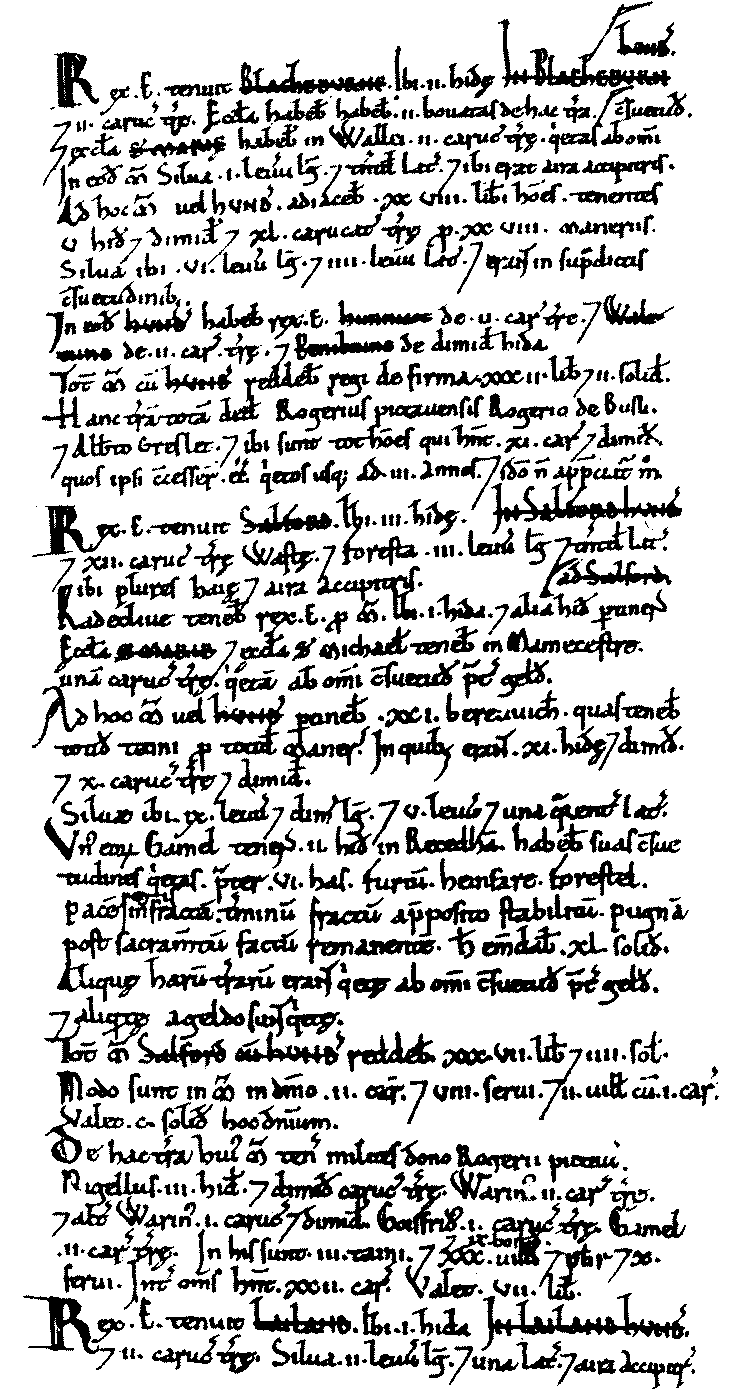 HUND'.
Rex .E. tenuit BLACHEBURNE. Ibi .ii. hidę IN BLACHEBURN
⁊ ii. caruc̃ tr̃ę. Eccl̃a habeb̃ .ii. bouatas de hac tr̃a. c̃suetud̃.
⁊ eccl̃a S MARIE habeb̃ in Wallei .ii. caruc̃ tr̃ę. q̇etas ab om̃i
In eod̃ m̃ Silua .i. leuu̇ lg̃. ⁊ tñtd̃ lat̃. ⁊ ibi erat aira accipitris.
Ad hoc m̃ uel HUND' adiaceb̃ .xxviii. lib̃i hões. tenentes
v hid̃ ⁊ dimid̃ ⁊ xl. carucat̃ tr̃ę p .xxviii. maneriis.
Silua ibi .vi. leuu̇ lg̃. ⁊ iiii. leuu̇ lat̃. ⁊ erañ in sup̃dictis
c̃suetudinib;.
In eod̃ HUND' habeb̃ rex .E. hunnicot de .ii. car̃ tr̃e. ⁊ Wale-
tune de .ii. car̃ tr̃ę. ⁊ Peniltune de dimid̃ hida
Tot̃ m̃ cũ HUND' reddeb̃ regi de firma .xxxii. lib̃ ⁊ ii. solid̃.
Hanc tr̃a totã ded̃ Rogerius pictauensis Rogerio de Busli.
⁊ Alb̃to Greslet. ⁊ ibi sunt tot hões qui hñt .xi. car̃ ⁊ dimid̃.
quos ipsi c̃cesser̃ ee̾ q̇etos usq; ad .iii. annos. ⁊ ido̾ ñ app̃ciat̃ m°.
Rex .E. tenuit Salford. Ibi .iii. hidę. IN Salford HUND'
⁊ xii. caruc̃ tr̃ę Wastę. ⁊ foresta .iii. leuu̇ lg̃ ⁊ tñtd̃ lat̃.
⁊ ibi plures haię ⁊ aira accipitris. ad Salford.
Radecliue teneb̃ rex .E. p m̃. Ibi .i. hida. ⁊ alia hid̃ ptineñ
Eccl̃a S MARIE ⁊ eccl̃a S Michael̃ teneb̃ in Mamecestre.
unã caruc̃ tr̃ę. q̇etã ab om̃i c̃suetud̃ p̃t̃ geld̃.
Ad hoc m̃ uel HUND' ptineb̃ .xxi. bereuuich̃. quas teneb̃
totid̃ taini p totid̃ maner̃. In quib; erañ .xi. hidę ⁊ dimid̃.
⁊ x. caruc̃ tr̃ę ⁊ dimid̃.
Siluæ ibi .ix. leuu̇ ⁊ dim̃ lg̃. ⁊ v. leuu̇ ⁊ una q̃rent̃ lat̃.
Vn̾ eoꝝ Gamel teneñs .ii. hid̃ in Recedhã. habeb̃ suas c̃sue
tudines q̇etas. p̃ter .vi. has. furtũ. heinfare. forestel.
pacẽ infractã. tminũ fractũ a pposito stabilitũ. pugnã
post sacramtũ factũ remanente. h̃ emdab̃ .xl. solid̃.
Aliquę harũ tr̃arũ erañ q̇etę ab om̃i c̃suetud̃ p̃t̃ geld̃.
⁊ aliq̃tę a geldo suñ q̇etę.
Tot̃ m̃ Salford cũ HUND' reddeb̃ .xxxvii. lib̃ ⁊ iiii. sol̃.
Modo sunt in m̃ in dñio .ii. car̃. ⁊ viii. serui. ⁊ ii. uill̃ cũ .i. car̃.
Valet .c. solid̃ hoc dñium.
De hac tr̃a hui̾ m̃ teñ milites dono Rogerii pictaui.
Nigellus .iii. hid̃. ⁊ dimid̃ caruc̃ tr̃ę. Warin̾ .ii. car̃ tr̃ę.
⁊ alt̃ Warin̾ .i. caruc̃ ⁊ dimid̃. Goisfrid̾ .i. caruc̃ tr̃ę. Gamel
.ii. car̃ tr̃ę. In his sunt .iii. taini. ⁊ xxx. uill̃ ⁊ ix bord̃. ⁊ pb̃r ⁊ x.
serui. Int̃ om̃s hñt .xxii. car̃. Valet .vii. lib̃.
Rex .E. tenuit LAILAND. Ibi .i. hida IN LAILAND HUND'.
⁊ ii. caruc̃ tr̃ę. Silua .ii. leuu̇ lg̃. ⁊ una lat̃. ⁊ aira accipitr̃.